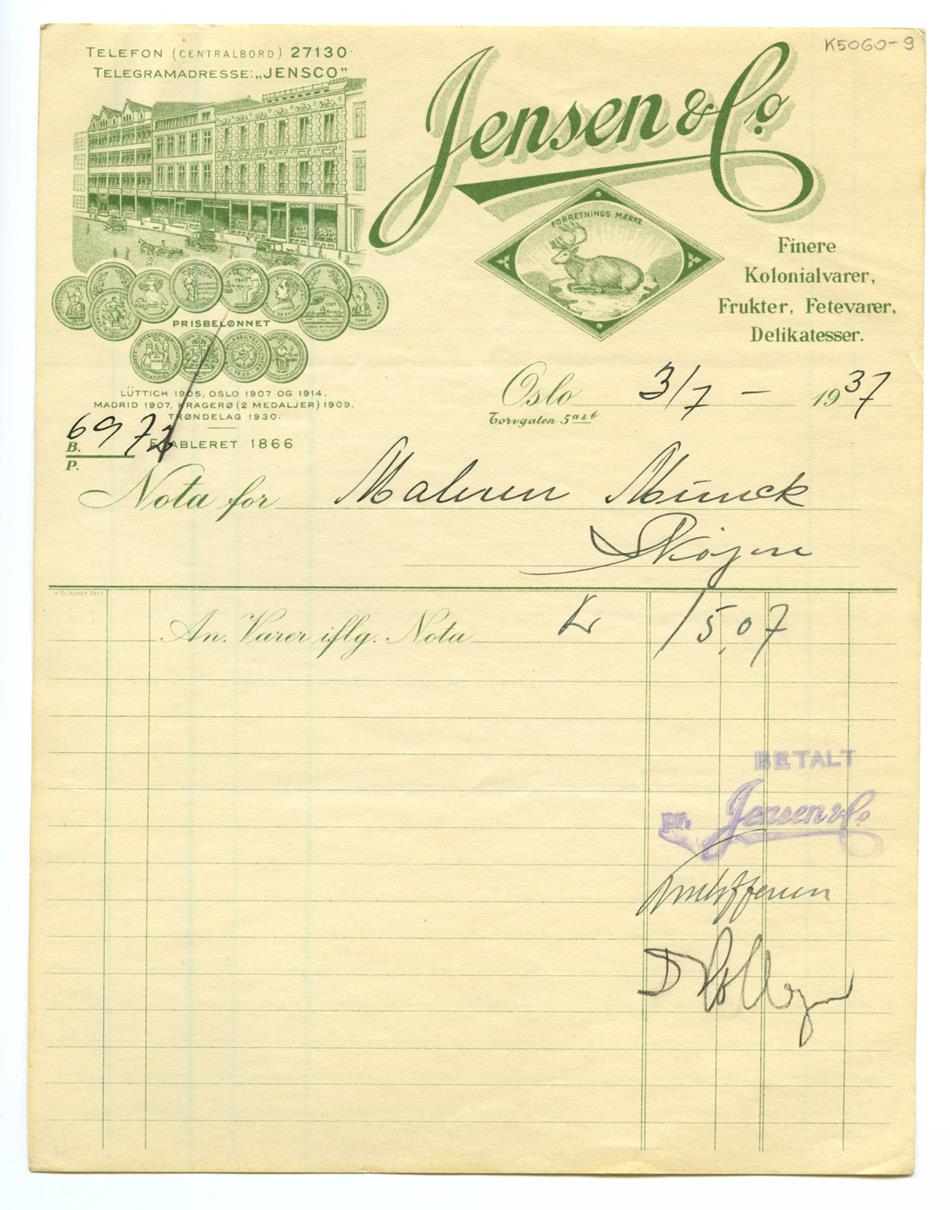 K5060-9
TELEFON (CENTRALBORD) 27130
TELEGRAMADRESSE: „JENSCO”
Jensen & Co
FORRETNINGS MÆRKE
Finere
Kolonialvarer,
Frukter, Fetevarer,
Delikatesser.
PRISBELØNNET
LÜTTICH 1905, OSLO 1907 OG 1914,
MADRID 1907, KRAGERØ (2 MEDALJER) 1909,
TRØNDELAG 1930.
Oslo 3/7 – 1937
Torvgaten 5 a & b
ETABLERET 1866
B.
P.
Nota for Maleren Munck
Skøyen
An. Varer iflg. Nota Kr 15,07
BETALT
pr. Jensen & Co